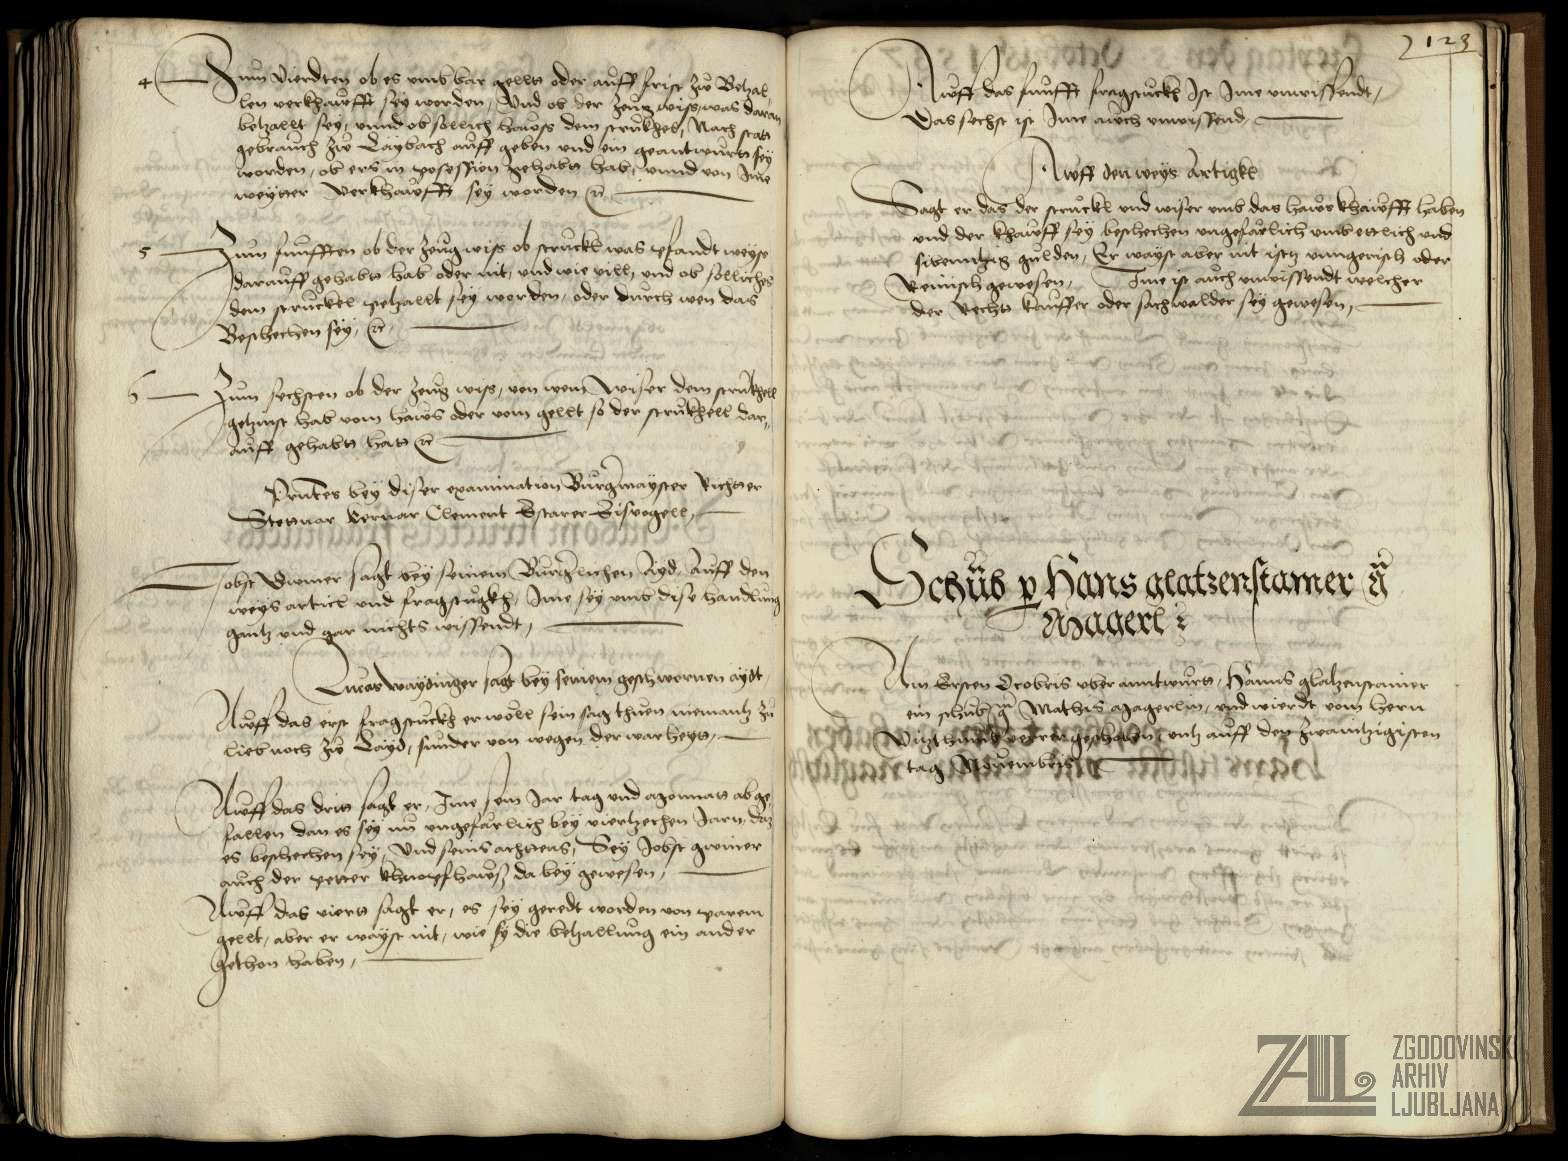 4 Zum Vierdten ob es umb bar gellt oder auff frist zw Betzal-
len verkhaufft sey worden, Und ob der zeug wiss, was daran
betzallt sey, unnd ob sollich hauss dem struckhel, Nach stat
gebrauch zw Laybach auff geben und ein geantwurt sey
worden, ob ers in possession gehabt hab, unnd von Ime
weytter verkhaufft sey worden &c
5 Zum funfften ob der zeug wiss ob struckl was pfandt weyse
darauff gehabt hab oder nit, und wie vill, und ob solliches
dem struckel petzallt sey worden, oder durch wen das
Beschechen sey, &c
6 Zum sechsten ob der zeug wiss, von wem Wiser dem struckhell
getzinst hab vom haus oder vom gellt so der struckhell dar-
auff gehabt hat &c
Pruntes bey diser examination Burgermayster Richter
Stettnar Vernar Clement Eisvogell,
Jobst Gwiner sagt bey seinem Burgerlichen Ayd, Auff den
weys articl und fragstuckh, Ime sey umb dise handlung
gantz und gar nichts wissendt,
Lucas Waydinger sagt bey seinem geschwornen aydt,
Auff das erst fragstuckh er woll sein sag thuen niemantz zu
lieb noch zw Layd, sunder von wegen der warheyt,
Auff das drit sagt er, Ime sein Jar tag und monnat ab ge-
fallen dan es sey nu ungefarlich bey viertzechen Jarn, das
es beschechen sey, Und seins achtens, Sey Jobst gwiner
auch der petter da bey gewesen,
Auff das viert sagt er, es sey geredt worden von parem
gellt, aber er wayst nit, wie sy die betzallung ein ander
gethon haben,
123
Auff das funfft fragstuckh Ist Ime unwissendt,
Das sechst ist Ime auch unwissend
Auff den weys Artigkl
Sagt er das der struckl und wiser umb das haus khaufft haben
und der khauff sey beschechen ungefarlich umb ettlich und
sibentzig gulden, Er wayst aber nit ists unngerisch oder
Reinisch gewesen, Ime ist auch unwissendt welcher
der Recht kauffer oder sachwalder sey gewesen,
Schub p Hans glatzenstainer
Magerl
Am Ersten Octobris uberanntwurt, Hanns glatzenstainer
ein schub Mathis magerln, und wierdt vom hern
untz auff den zwaintzigisten
tag Novembris
ZAL ZGODOVINSKI
ARHIV
LJUBLJANA